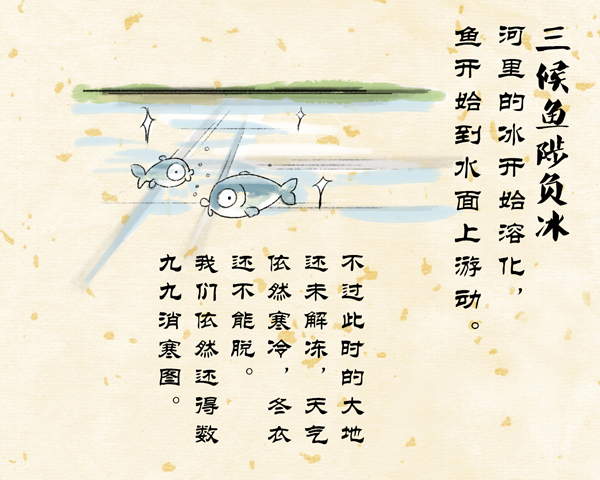 三候鱼陟负冰
河里的冰开始溶化，
鱼开始到水面上游动。
不过此时的大地
还未解冻，天气
依然寒冷，冬衣
还不能脱。
我们依然还得数
九九消寒图。